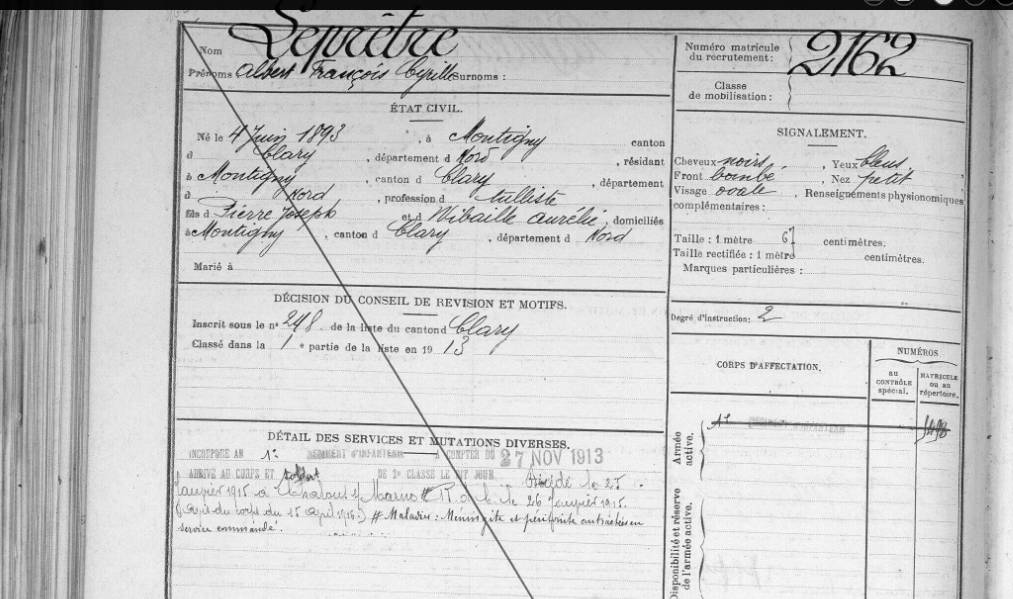 Nom Leprêtre
Prénoms Albert François Cyrille Surnoms :
Numéro matricule du recrutement : 2162
Classe de mobilisation :
ÉTAT CIVIL.
Né le 4 Juin 1893, à Montigny canton
d Clary, département d Nord, résidant
à Montigny, canton d Clary, département
d Nord, profession d tulliste
fils d Pierre Joseph et d Wibaille Aurélie, domiciliés
à Montigny, canton d Clary, département d Nord
Marié à
SIGNALEMENT.
Cheveux noirs, Yeux bleus,
Front bombé, Nez petit
Visage ovale, Renseignements physionomiques
complémentaires :
Taille : 1 mètre 67 centimètres.
Taille rectifiée : 1 mètre centimètres.
Marques particulières :
DÉCISION DU CONSEIL DE REVISION ET MOTIFS.
Inscrit sous le n° 248 de la liste du canton d Clary
Classé dans la 1e partie de la liste en 1913
Degré d'instruction : 2
CORPS D'AFFECTATION.
NUMÉROS
au CONTRÔLE spécial.
MATRICULE ou au répertoire.
Armée active.
1er
Disponibilité et réserve de l'armée active.
DÉTAIL DES SERVICES ET MUTATIONS DIVERSES.
INCORPORÉ AU 1er RÉGIMENT D'INFANTERIE À COMPTER DU 27 NOV 1913
ARRIVÉ AU CORPS ET soldat DE 2e CLASSE LE DIT JOUR Décédé le 25
Janvier 1915 à Chalons s/ Marne # le 26 Janvier 1915.
(avis du corps du 15 avril 1915.) # Maladies : Méningite et péritonite contractées en
service commandé.